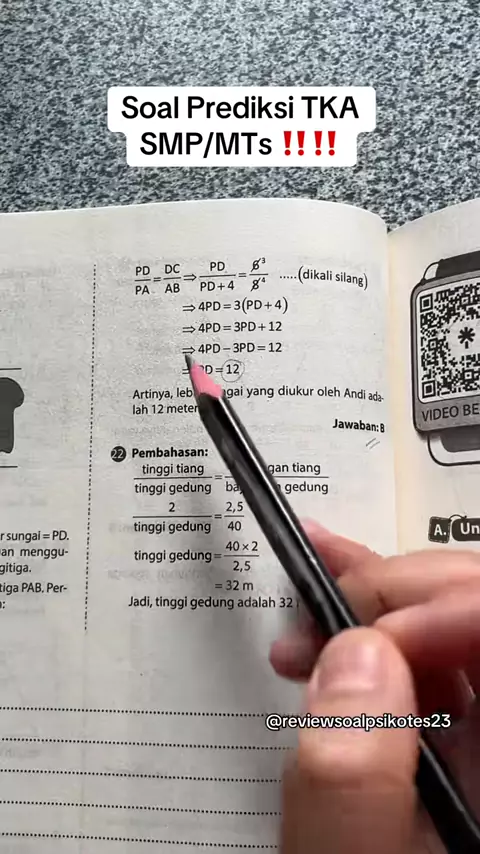 Soal Prediksi TKA
SMP/MTs ‼️‼️
PD/PA = DC/AB ⇒ PD/(PD + 4) = 6̸³/8̸⁴ .....(dikali silang)
⇒ 4PD = 3(PD + 4)
⇒ 4PD = 3PD + 12
⇒ 4PD − 3PD = 12
PD = 12
Artinya, gai yang diukur oleh Andi ada-
lah 12 meter
Jawaban: B
22 Pembahasan:
tinggi tiang/tinggi gedung = gan tiang/ba gedung
2/tinggi gedung = 2,5/40
tinggi gedung = (40 × 2)/2,5
= 32 m
Jadi, tinggi gedung adalah 32
r sungai = PD.
an menggu-
gitiga.
tiga PAB. Per-
:
VIDEO BE
A. Un
@reviewsoalpsikotes23